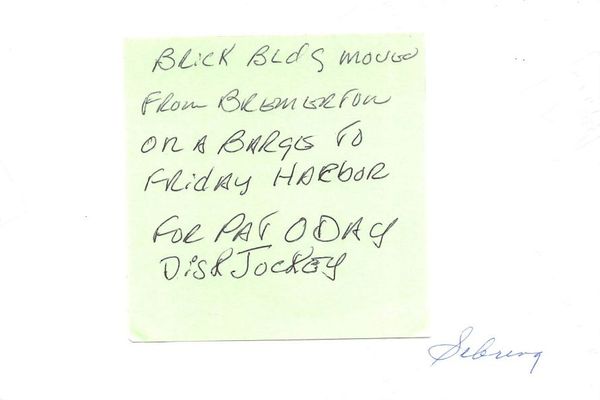 BRICK BLdG MOVED
FROM BREMERTON
ON A BARGE TO
FRIDAY HARBOR
FOR PAT O DAY
DISK JOCKEY
Sebring